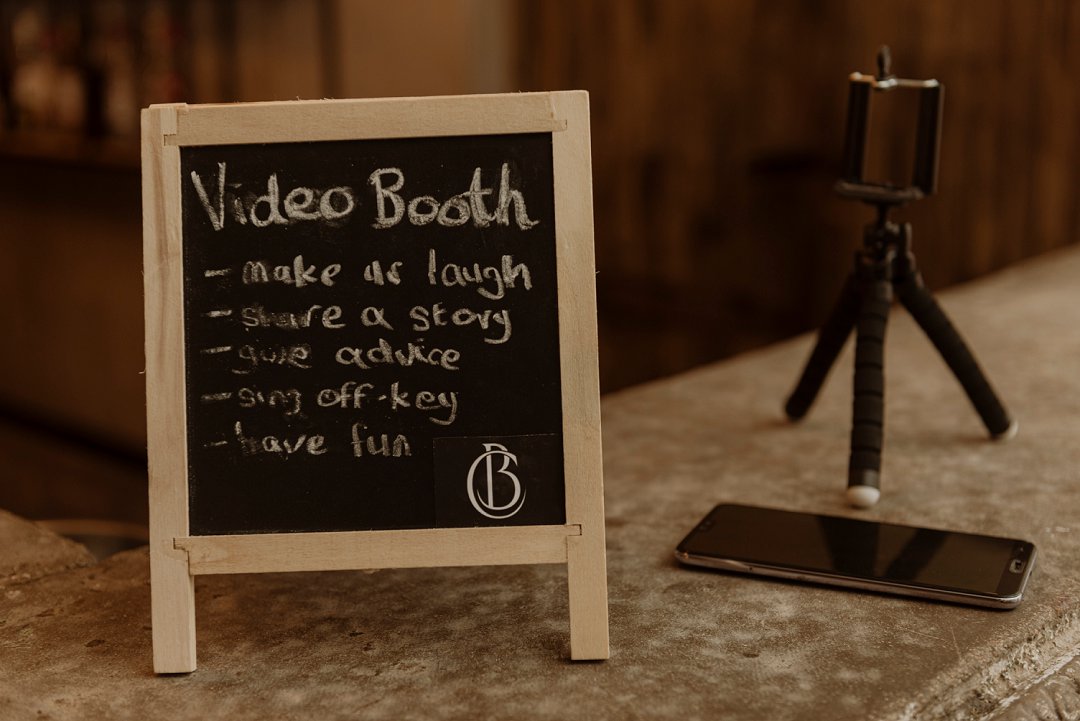 Video Booth
- make us laugh
- share a story
- give advice
- sing off-key
- have fun
CB